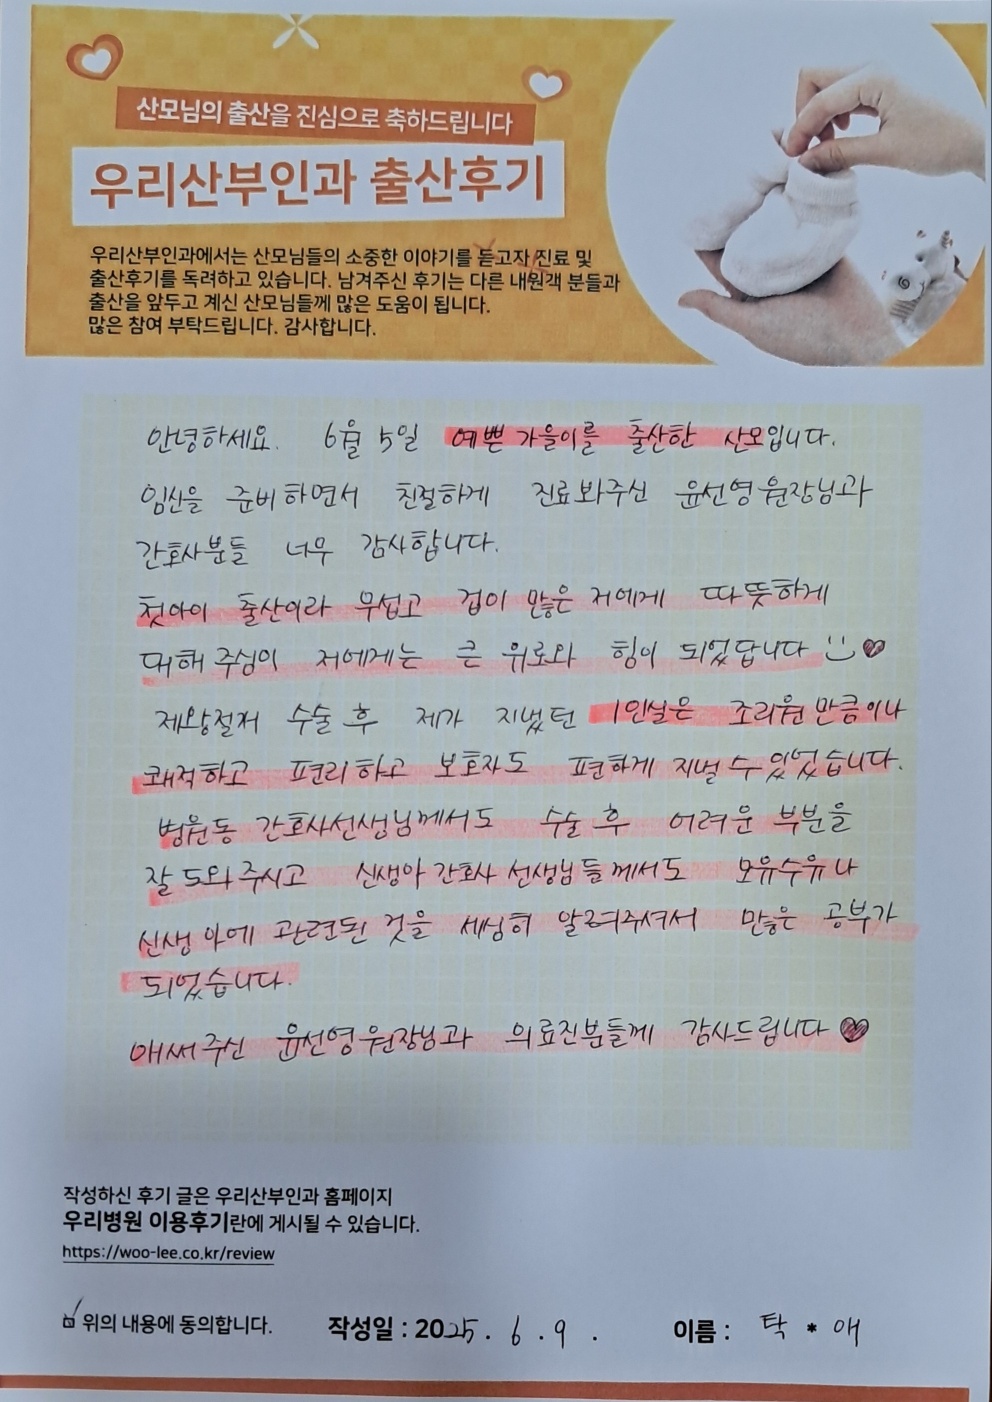 산모님의 출산을 진심으로 축하드립니다
우리산부인과 출산후기
우리산부인과에서는 산모님들의 소중한 이야기를 듣고자 진료 및
출산후기를 독려하고 있습니다. 남겨주신 후기는 다른 내원객 분들과
출산을 앞두고 계신 산모님들께 많은 도움이 됩니다.
많은 참여 부탁드립니다. 감사합니다.
안녕하세요. 6월 5일 예쁜 가을이를 출산한 산모입니다.
임신을 준비하면서 친절하게 진료봐주신 윤선영 원장님과
간호사분들 너무 감사합니다.
첫아이 출산이라 무섭고 겁이 많은 저에게 따뜻하게
대해 주심이 저에게는 큰 위로와 힘이 되었답니다
제왕절개 수술 후 제가 지냈던 1인실은 조리원만큼이나
쾌적하고 편리하고 보호자도 편하게 지낼 수 있었습니다.
병원동 간호사선생님께서도 수술 후 어려운 부분을
잘 도와주시고 신생아 간호사 선생님들께서도 모유수유나
신생아에 관련된 것을 세심히 알려주셔서 많은 공부가
되었습니다.
애써주신 윤선영 원장님과 의료진분들께 감사드립니다
작성하신 후기 글은 우리산부인과 홈페이지
우리병원 이용후기란에 게시될 수 있습니다.
https://woo-lee.co.kr/review
위의 내용에 동의합니다. 작성일 : 2025. 6. 9. 이름 : 탁 * 애